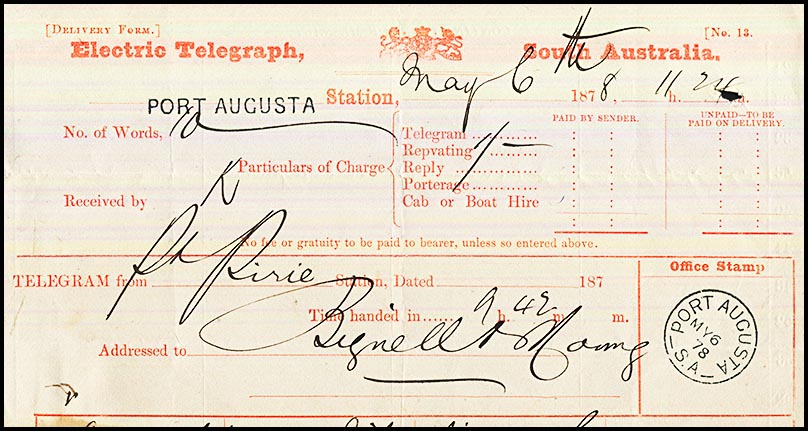 [Delivery Form.] [No. 13.
Electric Telegraph, South Australia,
PORT AUGUSTA Station, May 6th 1878, 11 h. 24 m.
No. of Words, 10
Particulars of Charge
PAID BY SENDER. UNPAID—TO BE PAID ON DELIVERY.
Telegram
Repvating 1/-
Reply
Porterage
Cab or Boat Hire
Received by K
No fee or gratuity to be paid to bearer, unless so entered above.
TELEGRAM from Pt Pirie Station, Dated 187
Time handed in 9 h. 42 m. m.
Addressed to Bignell & Young
Office Stamp
PORT AUGUSTA
MY 6
78
S.A